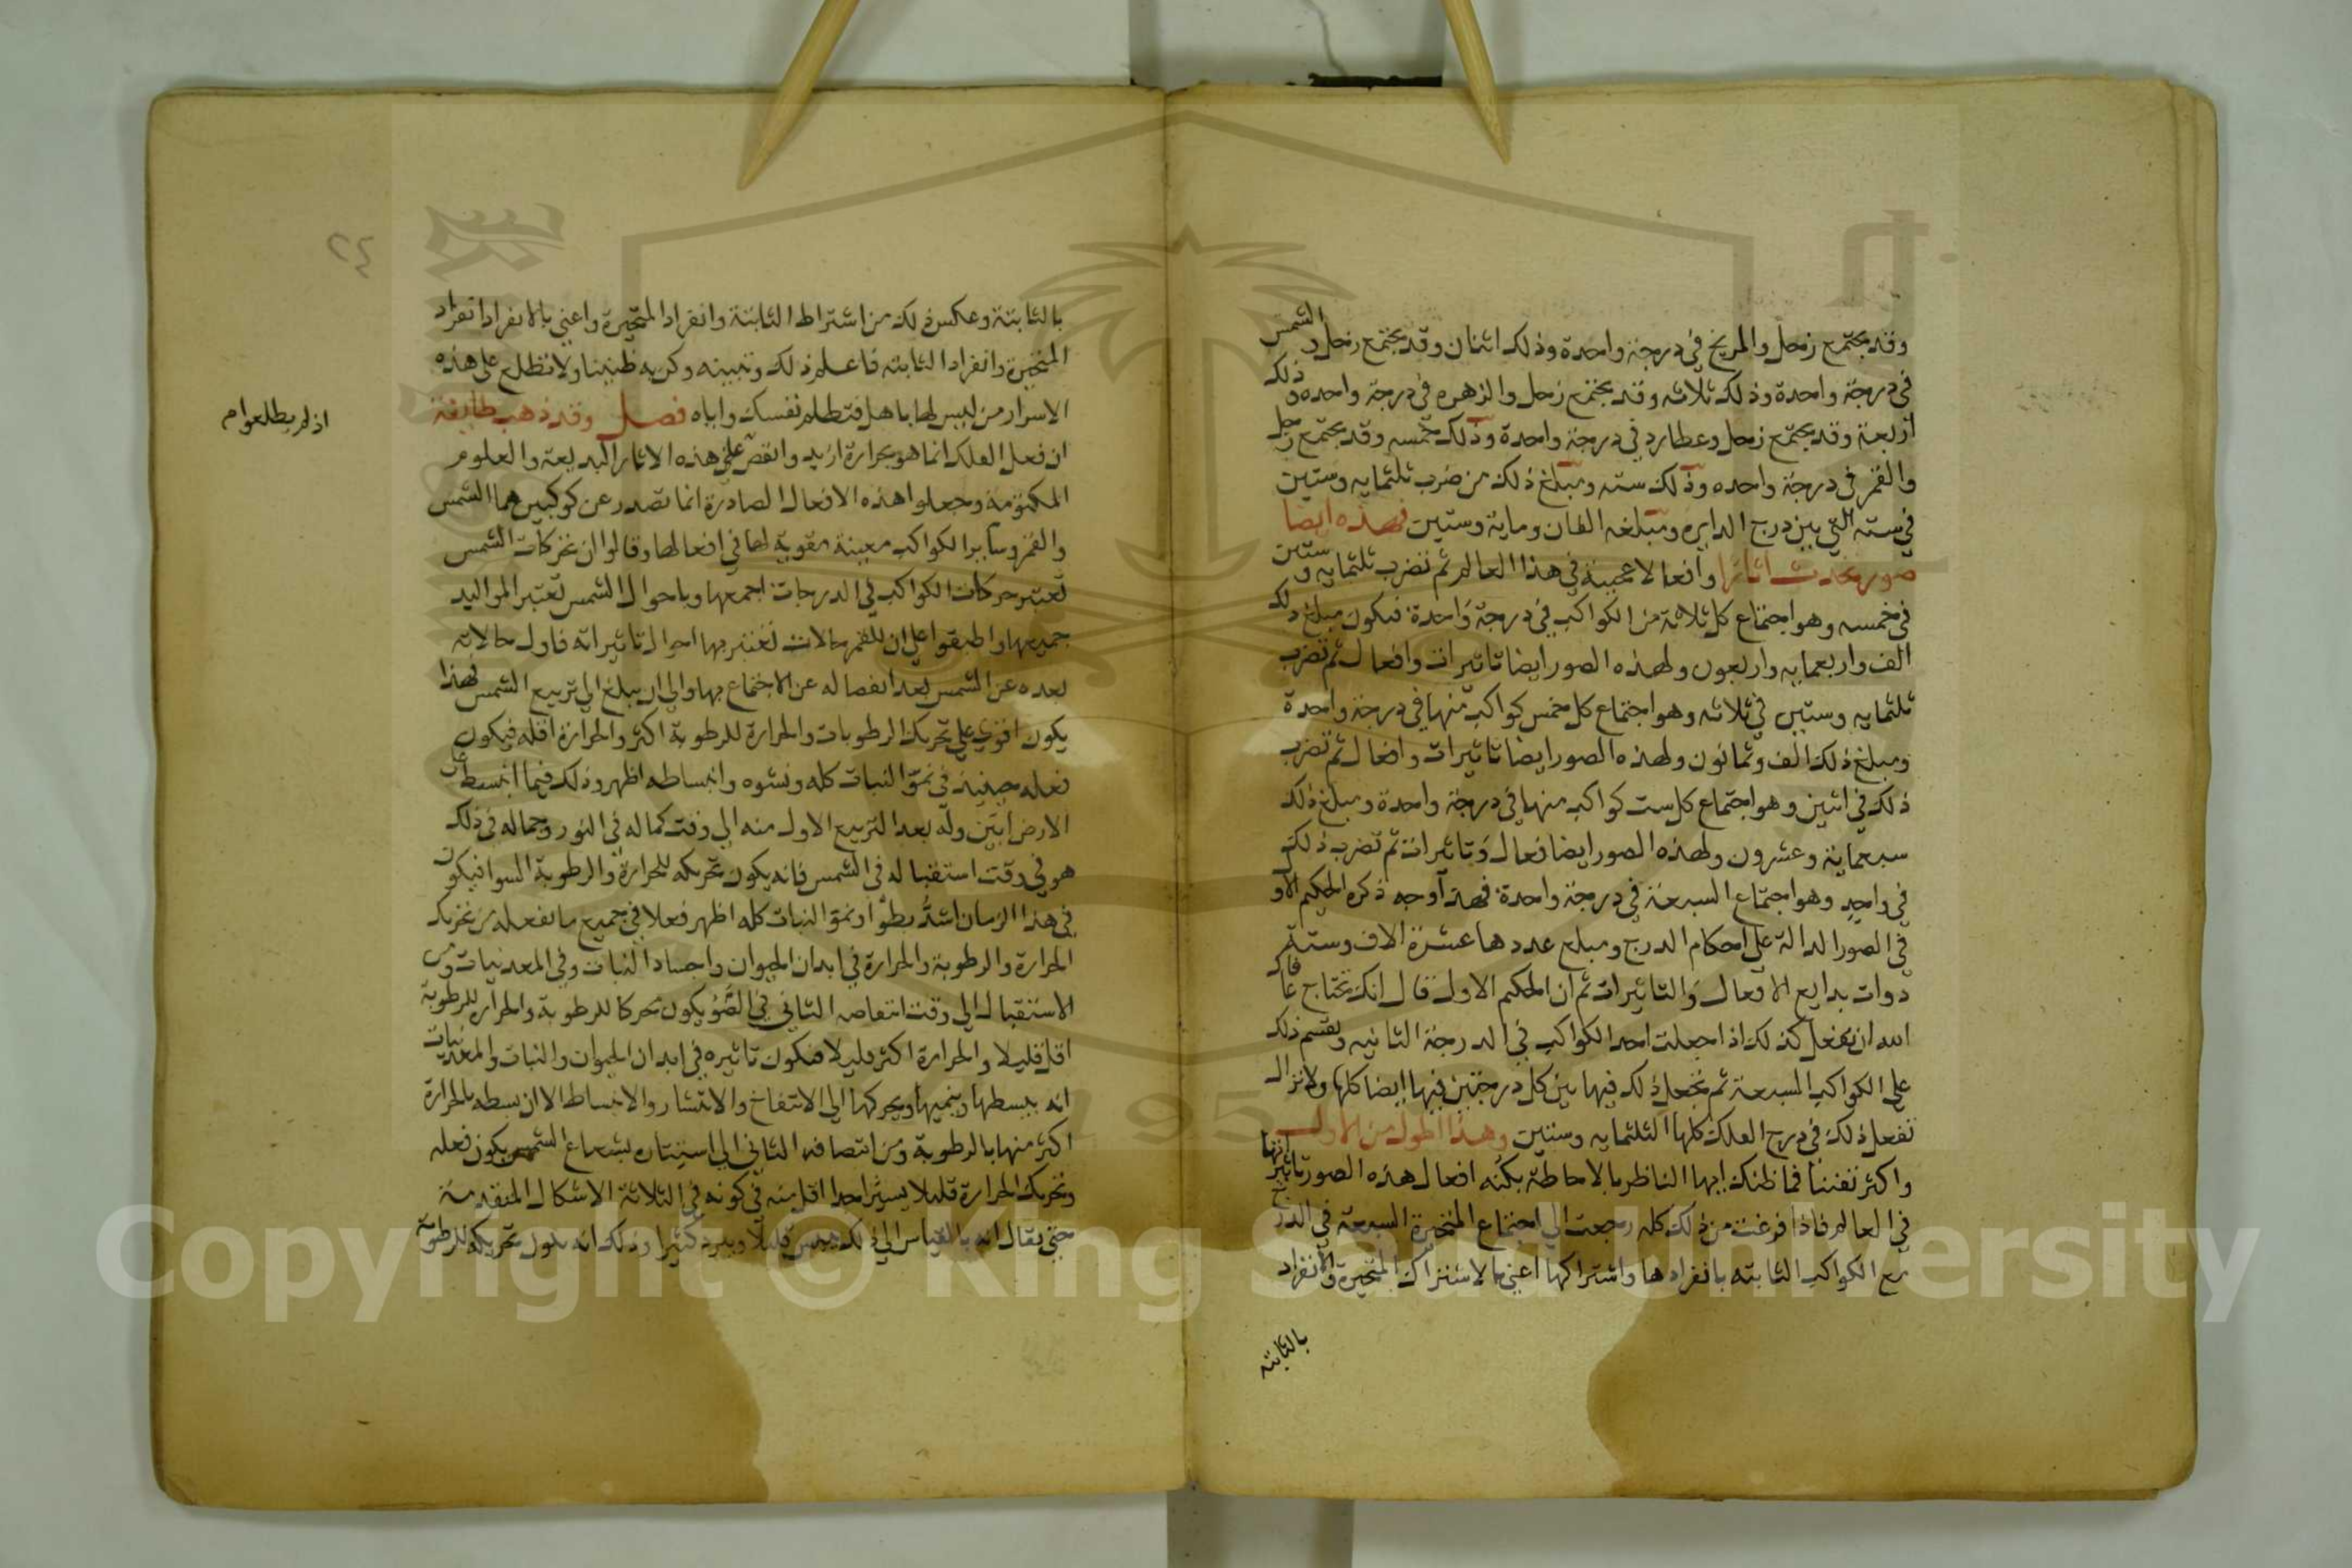 وقد يجتمع زحل والمريخ في درجة واحدة وذلك اثنان وقد يجتمع زحل والشمس
في درجة واحدة وذلك ثلاثه وقد يجتمع زحل والزهره في درجة واحده وذلك
اربعة وقد يجتمع زحل وعطارد في درجة واحدة وذلك خمسه وقد يجتمع زحل
والقمر في درجة واحده وذلك سته ومبلغ ذلك من ضرب ثلثمايه وستين
في سته التي بين درج الدايره ومبلغه الفان وماية وستين فهذه ايضا
صور تحدث اثارا وافعالا عجيبة في هذا العالم ثم تضرب ثلثمايه وستين
في خمسه وهو اجتماع كل ثلاثة من الكواكب في درجة واحدة فيكون مبلغ ذلك
الف واربعمايه واربعون ولهذه الصور ايضا تاثيرات وافعال ثم تضرب
ثلثمايه وستين في ثلاثه وهو اجتماع كل خمس كواكب منها في درجة واحدة
ومبلغ ذلك الف وثمانون ولهذه الصور ايضا تاثيرات وافعال ثم تضرب
ذلك في اثنين وهو اجتماع كل ست كواكب منها في درجة واحدة ومبلغ ذلك
سبعماية وعشرون ولهذه الصور ايضا فعال وتاثيرات ثم تضرب ذلك
في واحد وهو اجتماع السبعة في درجة واحدة فهذ اوجه ذكره الحكيم الاول
في الصور الدالة على احكام الدرج ومبلغ عددها عشرة الاف وستة
ذوات بدايع الافعال والتاثيرات ثم ان الحكيم الاول قال انك تحتاج عافاك
الله ان تفعل كذلك اذا جعلت احد الكواكب في الدرجة الثانيه وتقسم ذلك
على الكواكب السبعة ثم تجعل ذلك فيها بين كل درجتين فيها ايضا كلها ولا تزال
تفعل ذلك في درج الفلك كلها الثلثمايه وستين وهذا اطول من الاول
واكثر تفننا فما ظنك ايها الناظر بالاحاطة بكنه افعال هذه الصور تاثيراتها
في العالم فاذا فرغت من ذلك كله رجعت الى اجتماع المتحيرة السبعة في الدرج
مع الكواكب الثابته بانفرادها واشتراكها اعني بالاشتراك المتحيرة والانفراد
بالثابته
٢٤
بالثابتة وعكس ذلك من اشتراط الثابتة وانفراد المتحيرة واعني بالانفراد انفراد
المتحيرة وانفراد الثابته فاعلم ذلك وتبينه وكن به ضنينا ولا تطلع على هذه
الاسرار من ليس لها باهل فتظلم نفسك واياه فصل وقد ذهب طايفة
اذ لم يطلعوا م
ان فعل الفلك انما هو بحرارة ازيد وانقص على هذه الاثار البديعة والعلوم
المكتومة وجعلوا هذه الافعال الصادرة انما تصدر عن كوكبين هما الشمس
والقمر وساير الكواكب معينة مقوية لها في افعالها وقالوا ان تحركات الشمس
تعتبر حركات الكواكب في الدرجات اجمعها وباحوال الشمس تعتبر المواليد
جميعها واطبقوا على ان للقمر حالات تعتبر بها احوال تاثيراته فاول حالاته
بعده عن الشمس بعد انفصاله عن الاجتماع بها والى ان يبلغ الى تربيع الشمس فهذا
يكون اقوى على تحريك الرطوبات والحرارة للرطوبة اكثر والحرارة اقله فيكون
فعله حينيذ في نمو النبات كله ونشوه وانبساطه اظهر وذلك فيما انبسط على
الارض ابين وله بعد التربيع الاول منه الى وقت كماله في النور وجماله في ذلك
هو في وقت استقباله في الشمس فانه يكون تحريكه للحرارة والرطوبة السوا فيكون
في هذا الزمان اشد بطؤا ونمو النبات كله اظهر فعلا في جميع ما نفعله من تحريك
الحرارة والرطوبة والحرارة في ابدان الحيوان واجساد النبات وفي المعدنيات ومن
الاستقبال الى وقت انتصافه الثاني في الضو يكون محركا للرطوبة والحرارة للرطوبة
اقل قليلا والحرارة اكثر قليلا فيكون تاثيره في ابدان الحيوان والنبات والمعدنيات
انه يبسطها وينميها ويحركها الى الانتفاخ والانتشار والانبساط الا ان بسطه بالحرارة
اكثر منها بالرطوبة ومن انتصافه الثاني الى استتاره بشعاع الشمس يكون فعله
وتحريك الحرارة قليلا يسيرا جدا اقل منه في كونه في الثلاثة الاشكال المتقدمة
حتى يقال انه بالقياس الى ذلك ييبس قليلا ويبرد كثيرا وذلك انه يكون تحريكه للرطوبة